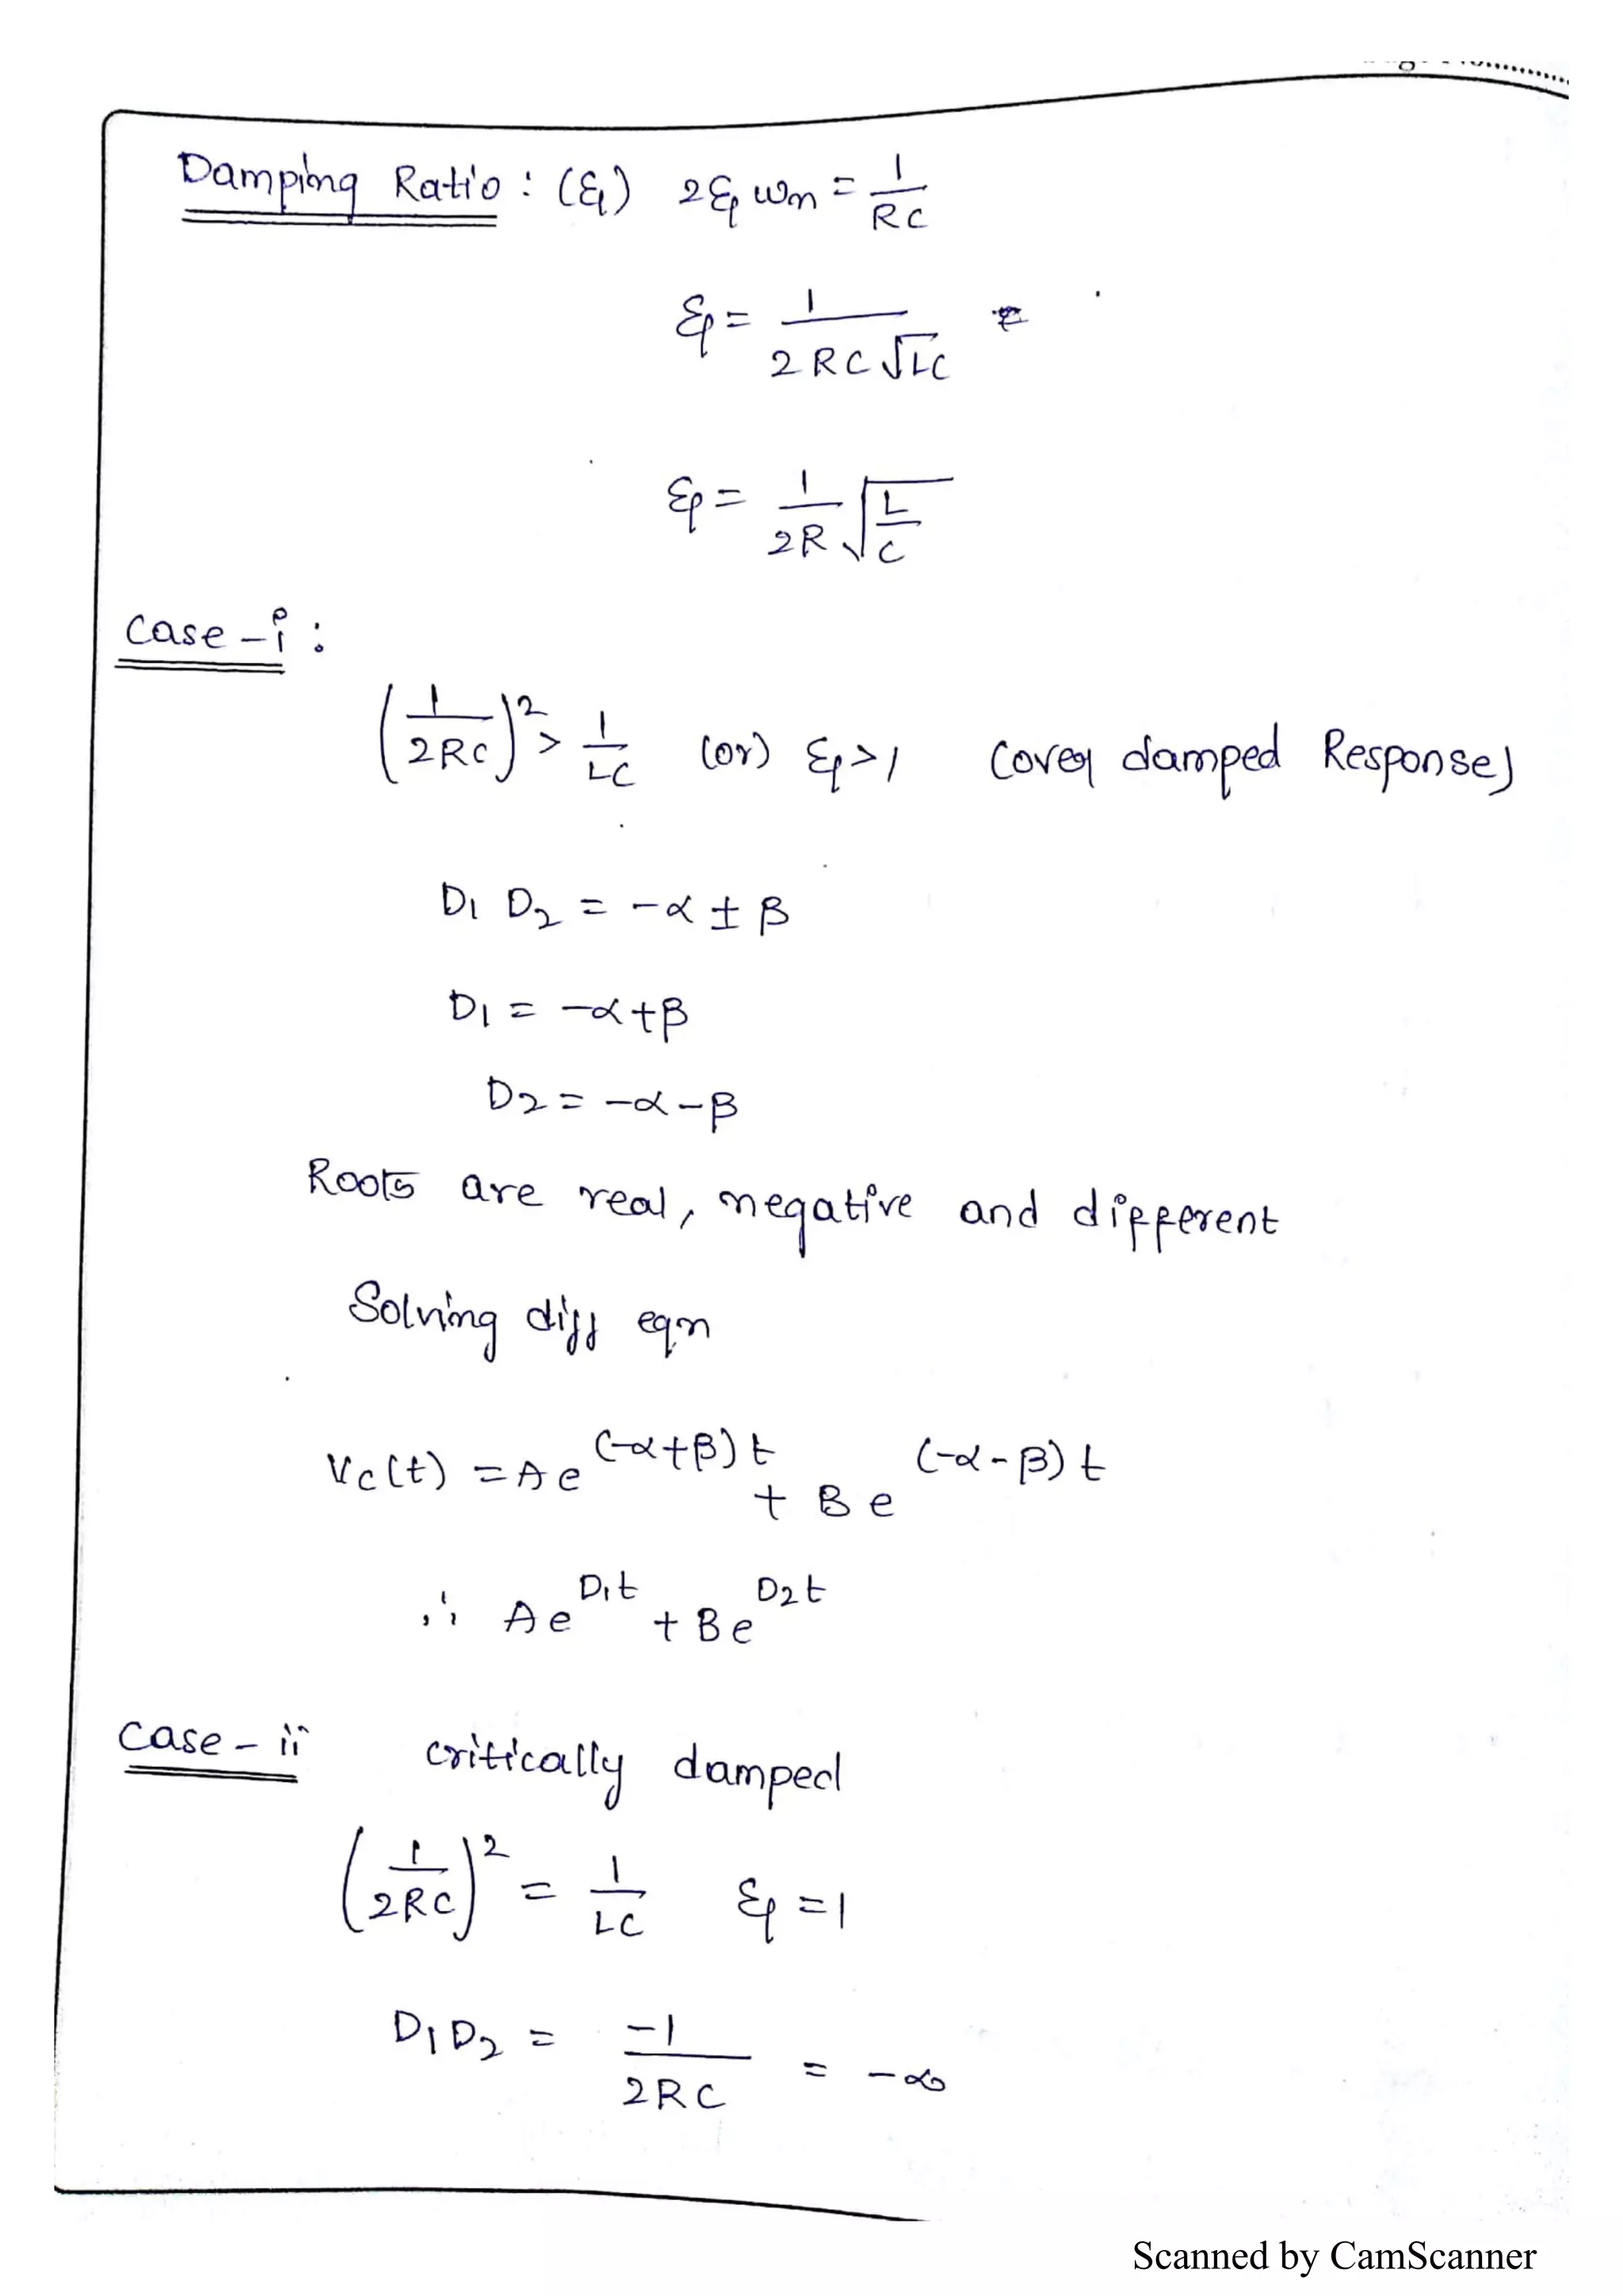 Damping Ratio : (ξ) 2ξ ωn = 1/RC
ξ = 1/(2RC√LC)
ξ = 1/2R √(L/C)
Case - i :
(1/2RC)² > 1/LC (or) ξ > 1 (over damped Response)
D1 D2 = -α ± β
D1 = -α + β
D2 = -α - β
Roots are real, negative and different
Solving diff eqn
Vc(t) = A e^(-α+β)t + B e^(-α-β)t
∴ A e^D1t + B e^D2t
Case - ii critically damped
(1/2RC)² = 1/LC ξ = 1
D1 D2 = -1/2RC = -∞
Scanned by CamScanner